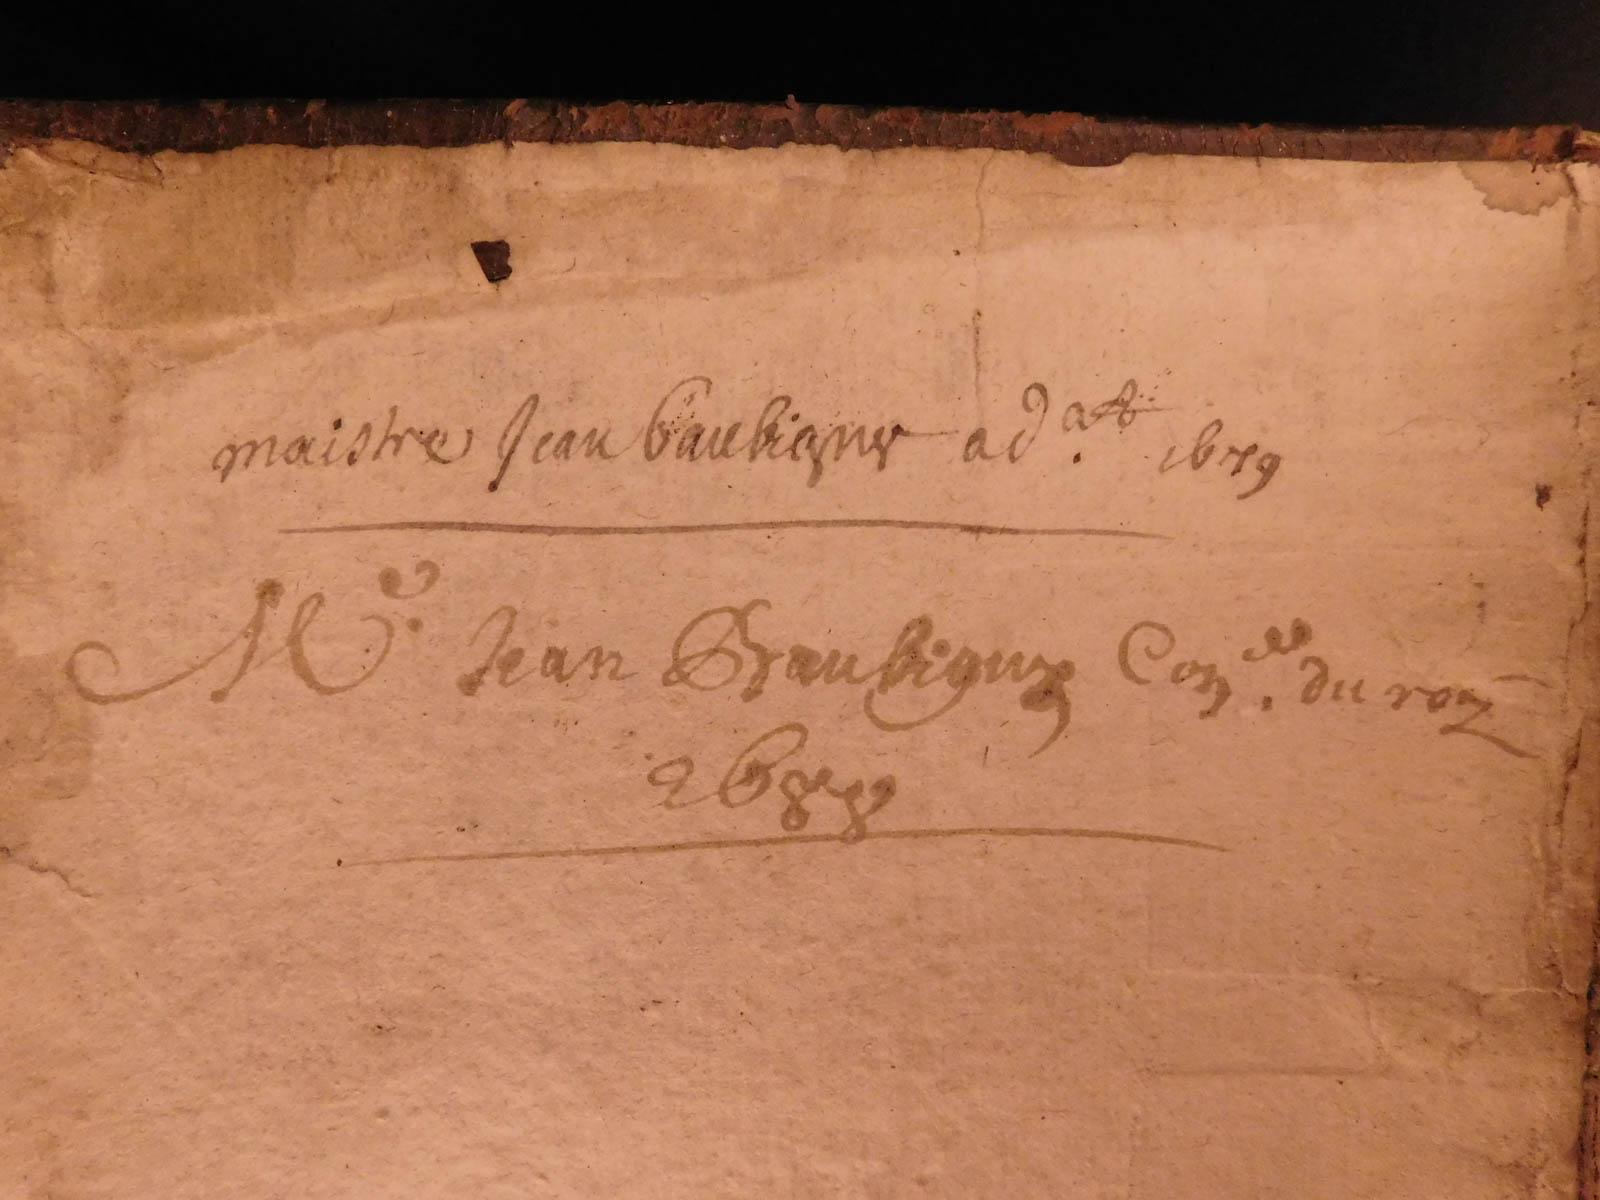 maistre Jean Baubigny ad.at 1679
Mre. Jean Baubigny Coner. du roy
1688